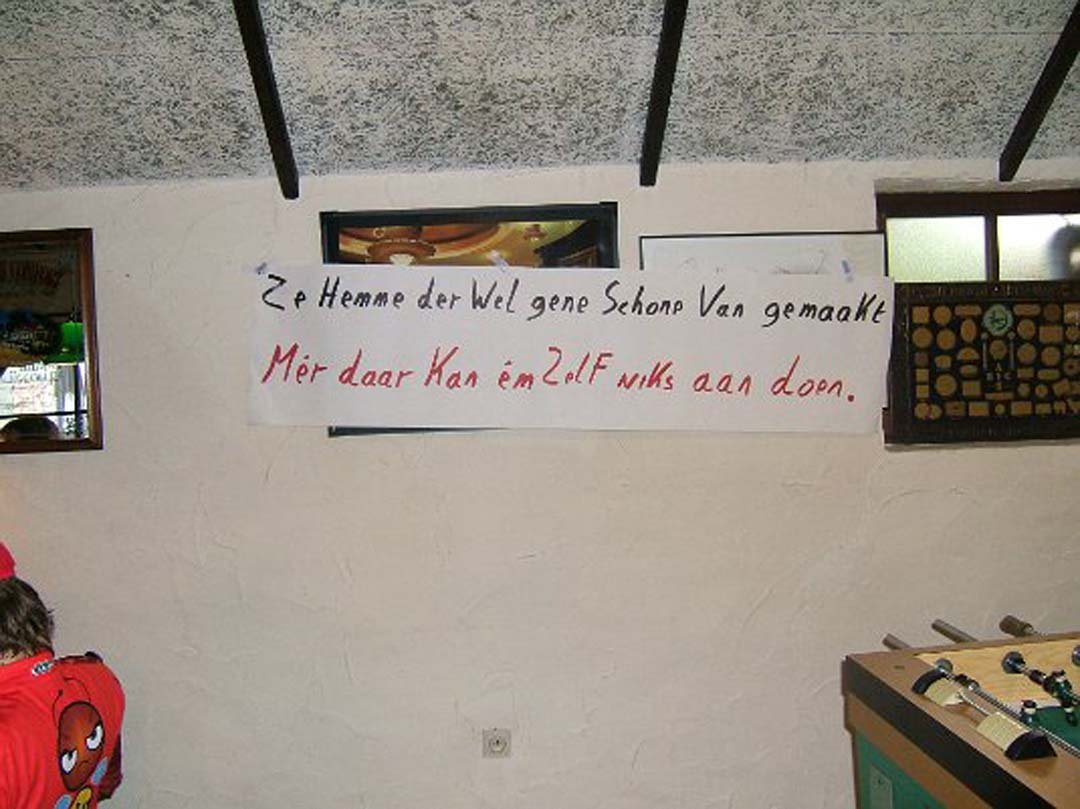 Ze Hemme der Wel gene Schone Van gemaakt
Mér daar Kan ém Zelf niks aan doen.